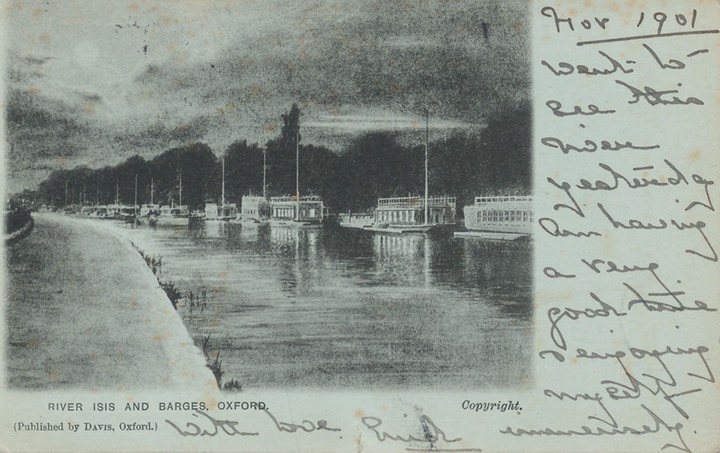 Nov 1901
went to
see this
river
yesterday
Am having
a very
good time
& enjoying
myself
immensely.
With love.
RIVER ISIS AND BARGES, OXFORD.
Copyright.
(Published by DAVIS, Oxford.)